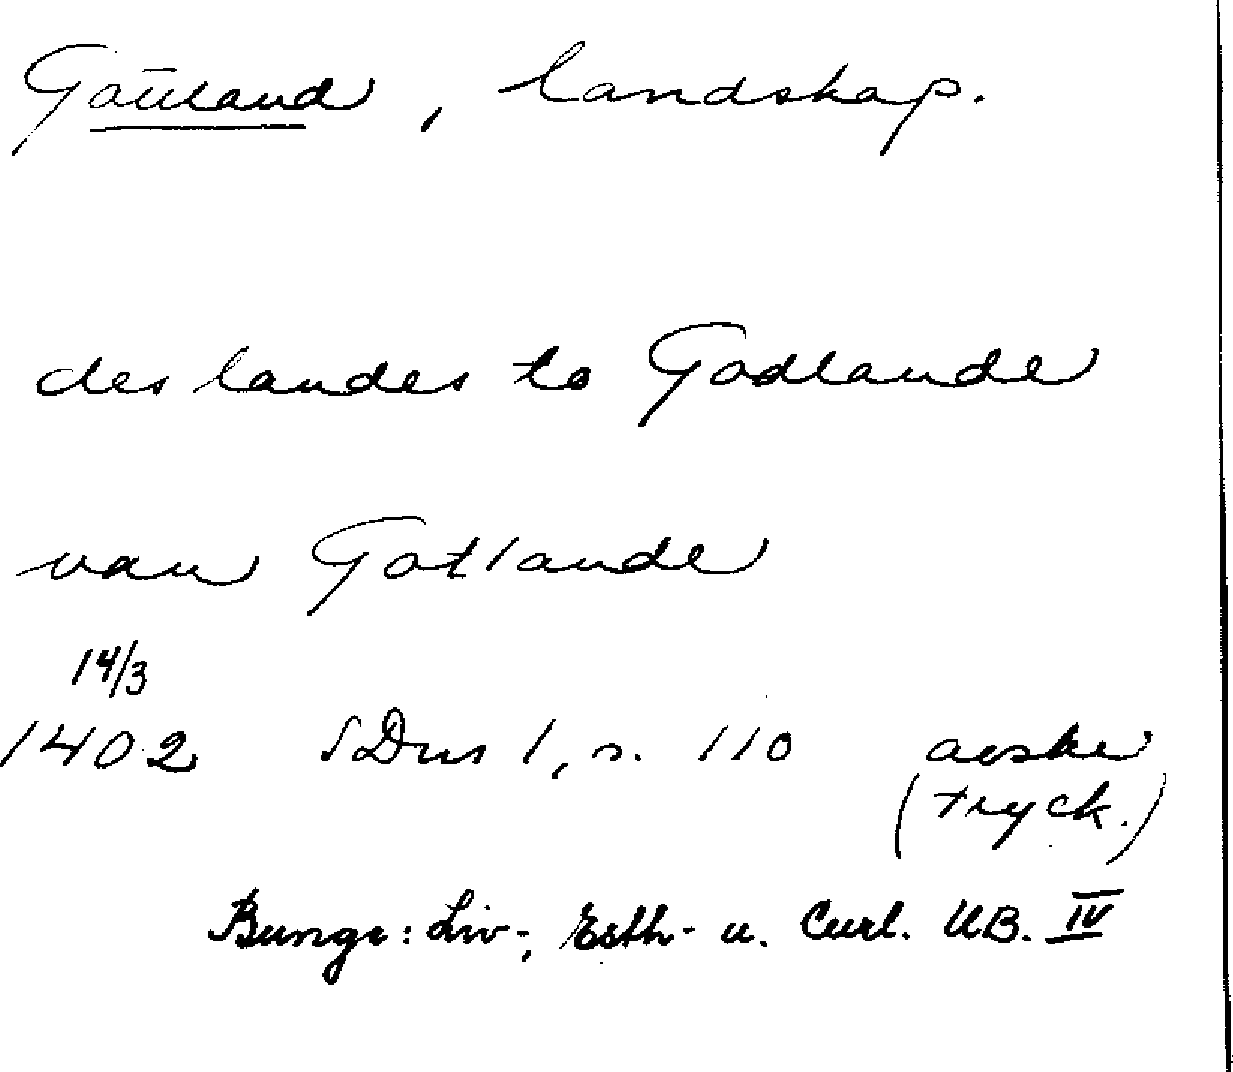 Gottland, landskap.
des landes to Godlande
van Gotlande
14/3
1402 SDns 1, s. 110 avskr
(tryck.)
Bunge: Liv-, Esth- u. Curl. UB. IV